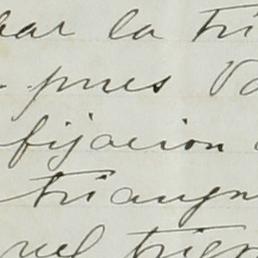 bar la tri
pues
fijacion
triangu